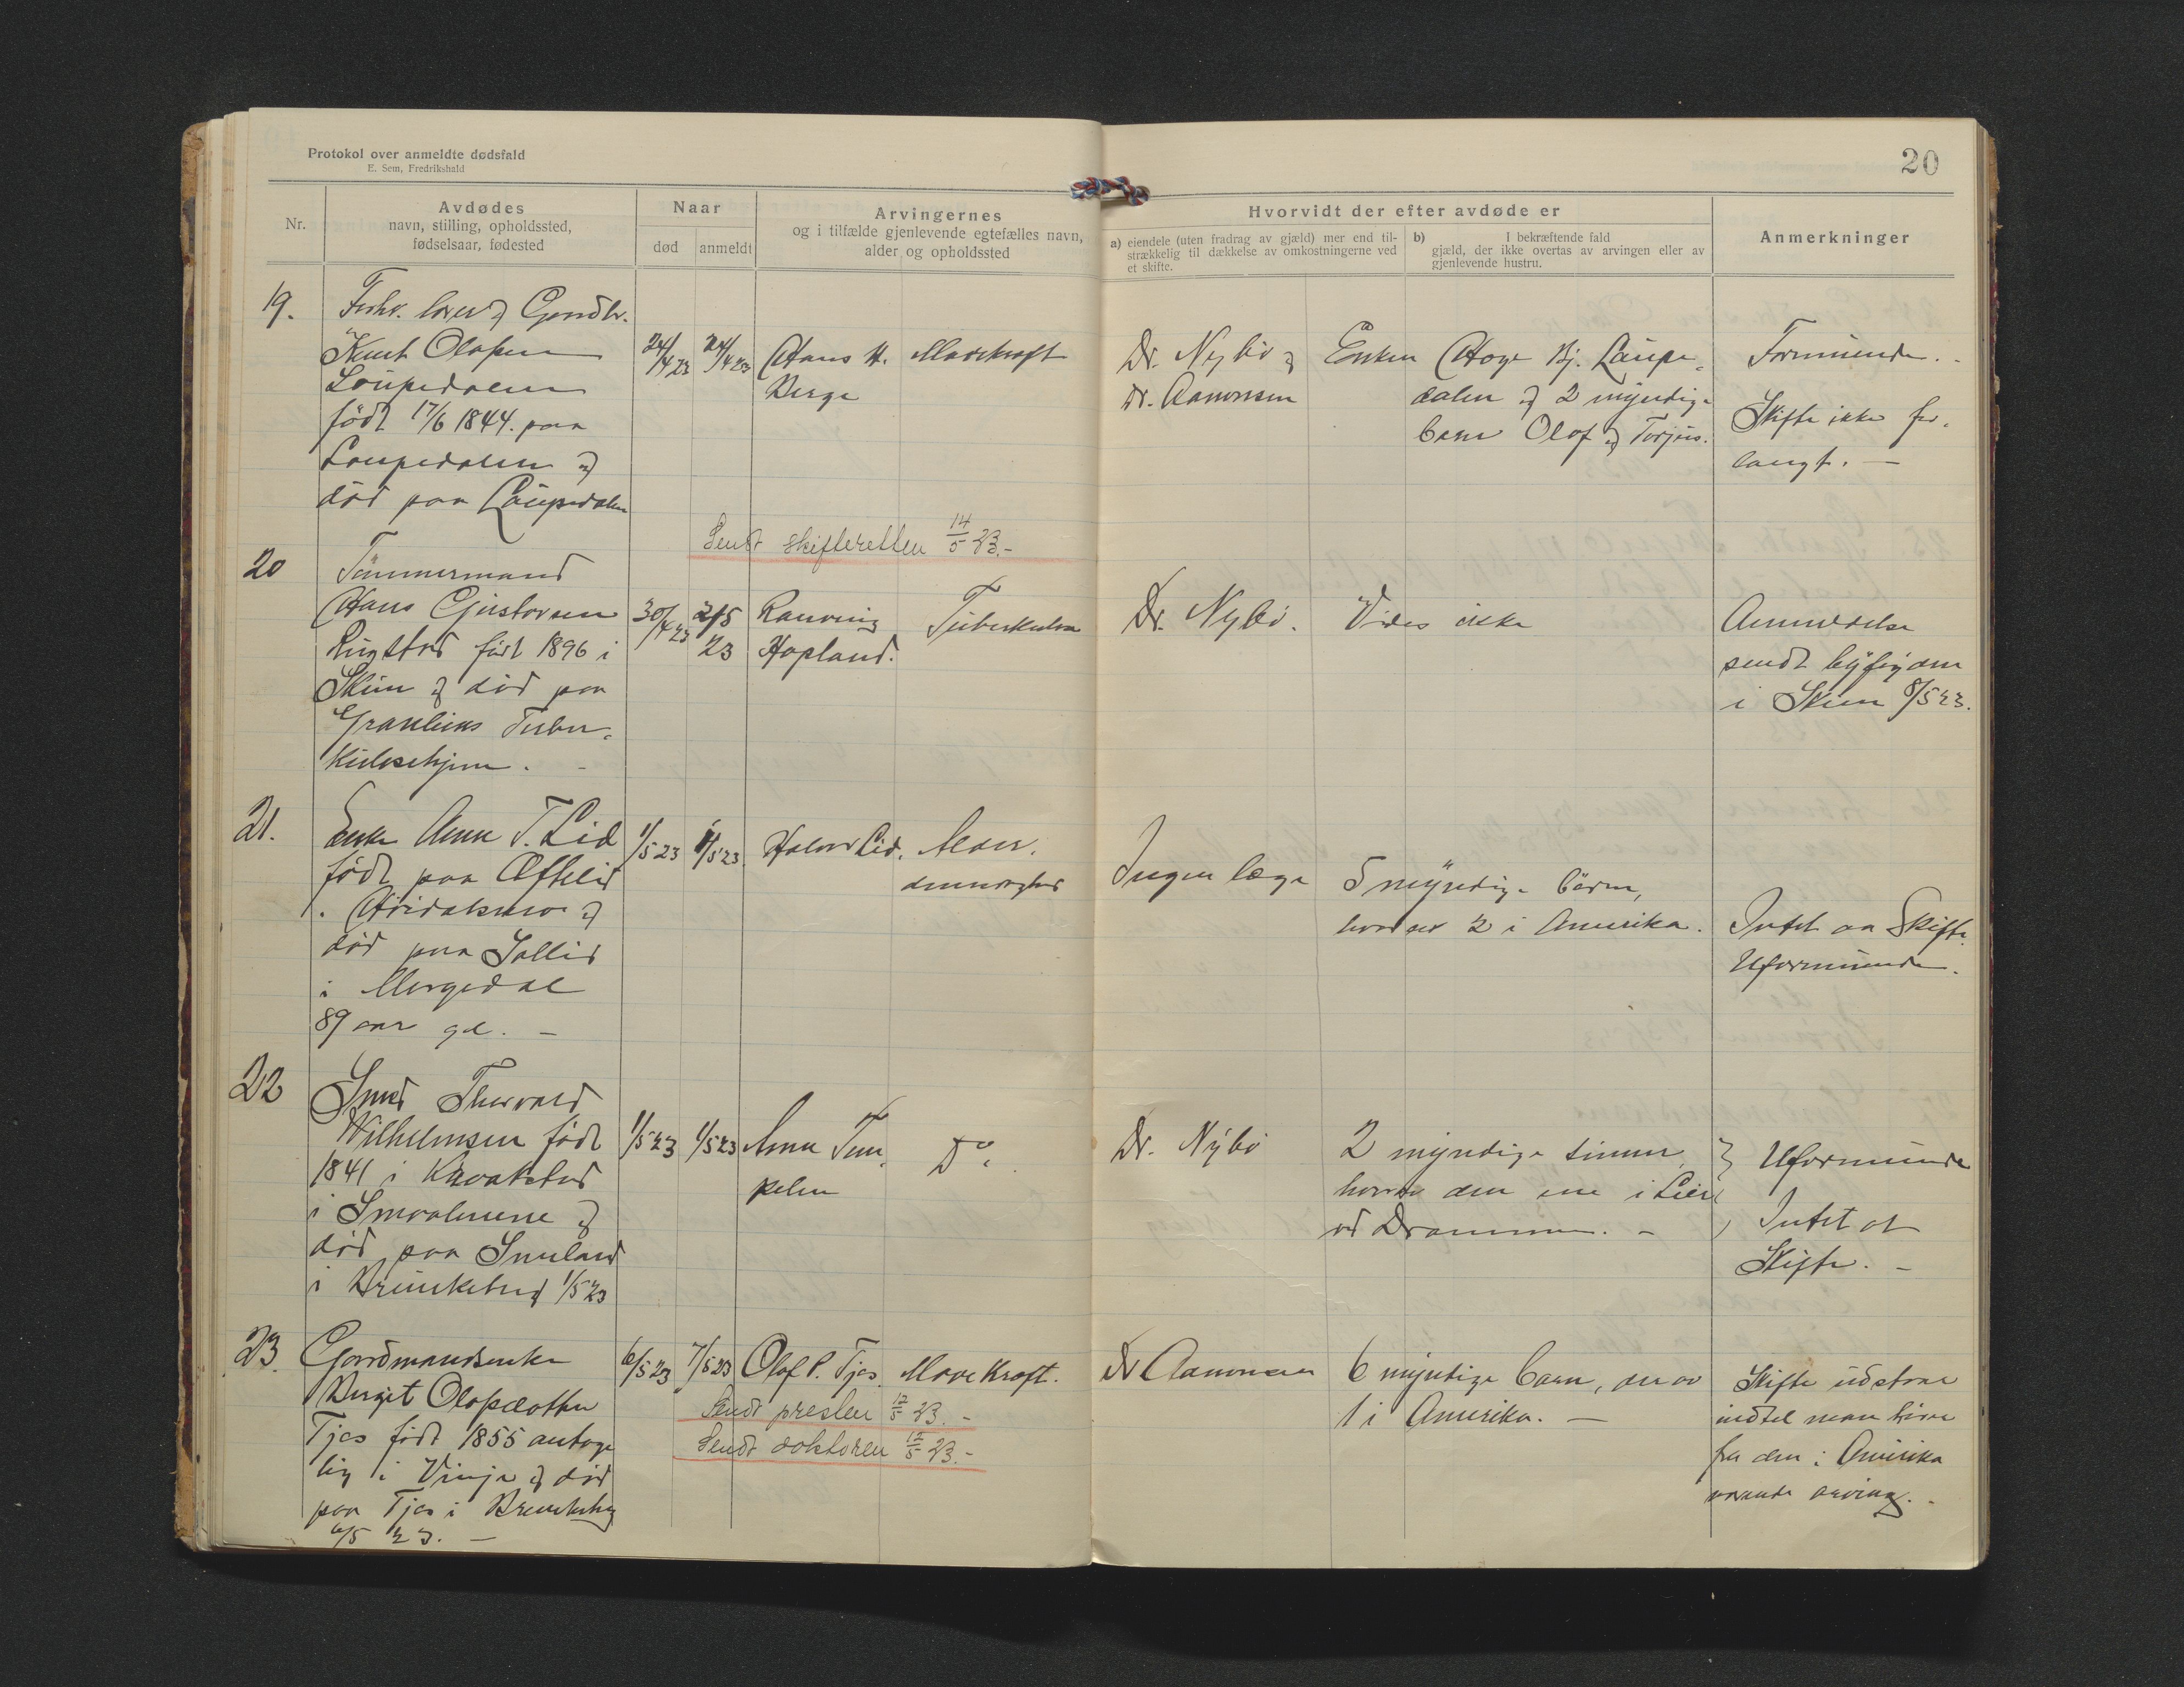 Protokol over anmeldte dødsfald
E. Sem, Fredrikshald
20
Nr.
Avdødes
navn, stilling, opholdssted,
fødselsaar, fødested
Naar
død
anmeldt
Arvingernes
og i tilfælde gjenlevende egtefælles navn,
alder og opholdssted
Hvorvidt der efter avdøde er
a) eiendele (uten fradrag av gjæld) mer end til-
strækkelig til dækkelse av omkostningerne ved
et skifte.
b) I bekræftende fald
gjæld, der ikke overtas av arvingen eller av
gjenlevende hustru.
Anmerkninger
19.
Forhv. og Gaardbr.
Knut Olafsen
Loupedalen
født 17/6 1844. paa
Loupedalen og
død paa Laupedalen
24/4 23
24/4 23
Hans H.
Berge
Mavekræft
Dr. Nybö og
Dr. Aanonsen
Enken Hæge Kj. Laupe-
dalen og 2 myndige
barn Olaf og Torjus.
Formuende.
Skifte ikke for-
langt. —
Sendt skifteretten 14/5 23.-
20
Tömmermand
Hans Gustavsen
Rugtved født 1896 i
Skien og død paa
Granliens Tuber-
kulosehjem. -
30/4 23
2/5 23
Ranveig
Hopland.
Tuberkulose
Dr. Nybö.
Vides ikke
Anmeldelse
sendt byfogden
i Skien 8/5 23.
21.
Enke Anne T. Lid
født paa Øftelid
i Höidalsmo og
död paa Sollid
i Morgedal
89 aar gl. —
1/5 23
1/5 23
Halvor Lid.
Alder-
domssvaghed
Ingen læge
5 myndige børn,
hvorav 2 i Amerika.
Intet aa Skifte.
Uformuende.
22
Smed Thorvald
Wilhelmsen født
1841 i
i Smaalenene og
död paa
i Brunkeberg 1/5 23
1/5 23
1/5 23
Anne Tem-
pelen
Do.
Dr. Nybö
2 myndige sönner
hvorav den ene i Lier
ved Drammen. -
Uformuende
Intet at
Skifte. —
23.
Gaardmandsenke
Berget Olafsdotter
Tjos født 1855 antage-
lig i Vinje og død
paa Tjos i Brunkeberg
6/5 23. —
6/5 23
7/5 23
Olaf P. Tjos.
Mave Kræft.
Dr Aanonsen
6 myndige barn, derav
1 i Amerika. —
Skifte udstaar
indtil man hører
fra den i Amerika
værende arving. -
Sendt presten 12/5 23. -
Sendt doktoren 12/5 23. -